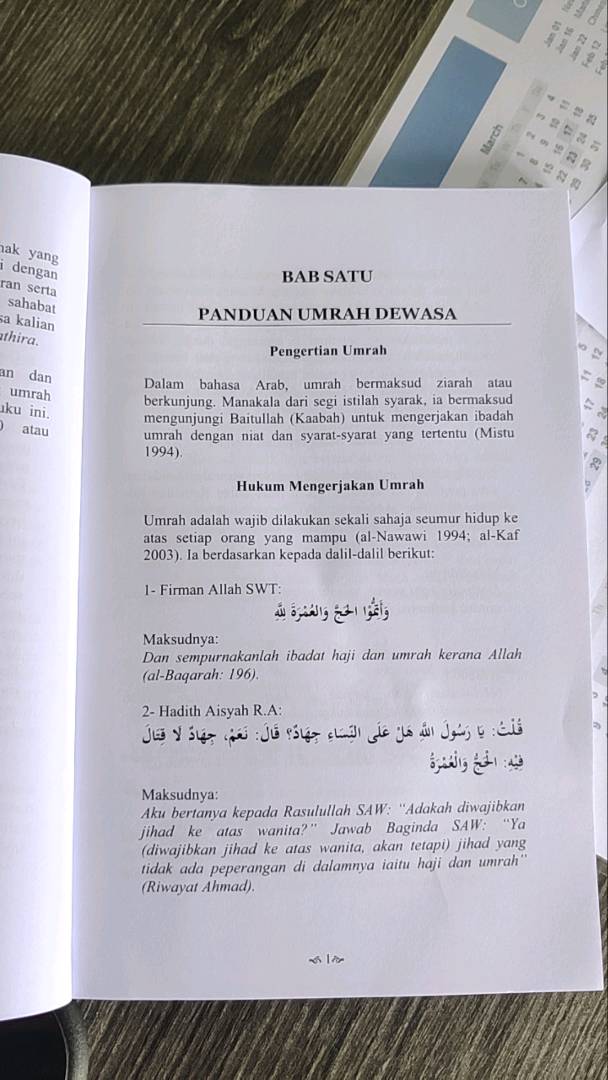 hak yang
i dengan
ran serta
sahabat
sa kalian
athira.
an dan
umrah
uku ini.
) atau
BAB SATU
PANDUAN UMRAH DEWASA
Pengertian Umrah
Dalam bahasa Arab, umrah bermaksud ziarah atau
berkunjung. Manakala dari segi istilah syarak, ia bermaksud
mengunjungi Baitullah (Kaabah) untuk mengerjakan ibadah
umrah dengan niat dan syarat-syarat yang tertentu (Mistu
1994).
Hukum Mengerjakan Umrah
Umrah adalah wajib dilakukan sekali sahaja seumur hidup ke
atas setiap orang yang mampu (al-Nawawi 1994; al-Kaf
2003). Ia berdasarkan kepada dalil-dalil berikut:
1- Firman Allah SWT:
وَأَتِمُّوا الْحَجَّ وَالْعُمْرَةَ لِلَّهِ
Maksudnya:
Dan sempurnakanlah ibadat haji dan umrah kerana Allah
(al-Baqarah: 196).
2- Hadith Aisyah R.A:
قُلْتُ: يَا رَسُولَ اللهِ هَلْ عَلَى النِّسَاءِ جِهَادٌ؟ قَالَ: نَعَمْ، جِهَادٌ لَا قِتَالَ
فِيْهِ: الْحَجُّ وَالْعُمْرَةُ
Maksudnya:
Aku bertanya kepada Rasulullah SAW: "Adakah diwajibkan
jihad ke atas wanita?" Jawab Baginda SAW: "Ya
(diwajibkan jihad ke atas wanita, akan tetapi) jihad yang
tidak ada peperangan di dalamnya iaitu haji dan umrah"
(Riwayat Ahmad).
1
March